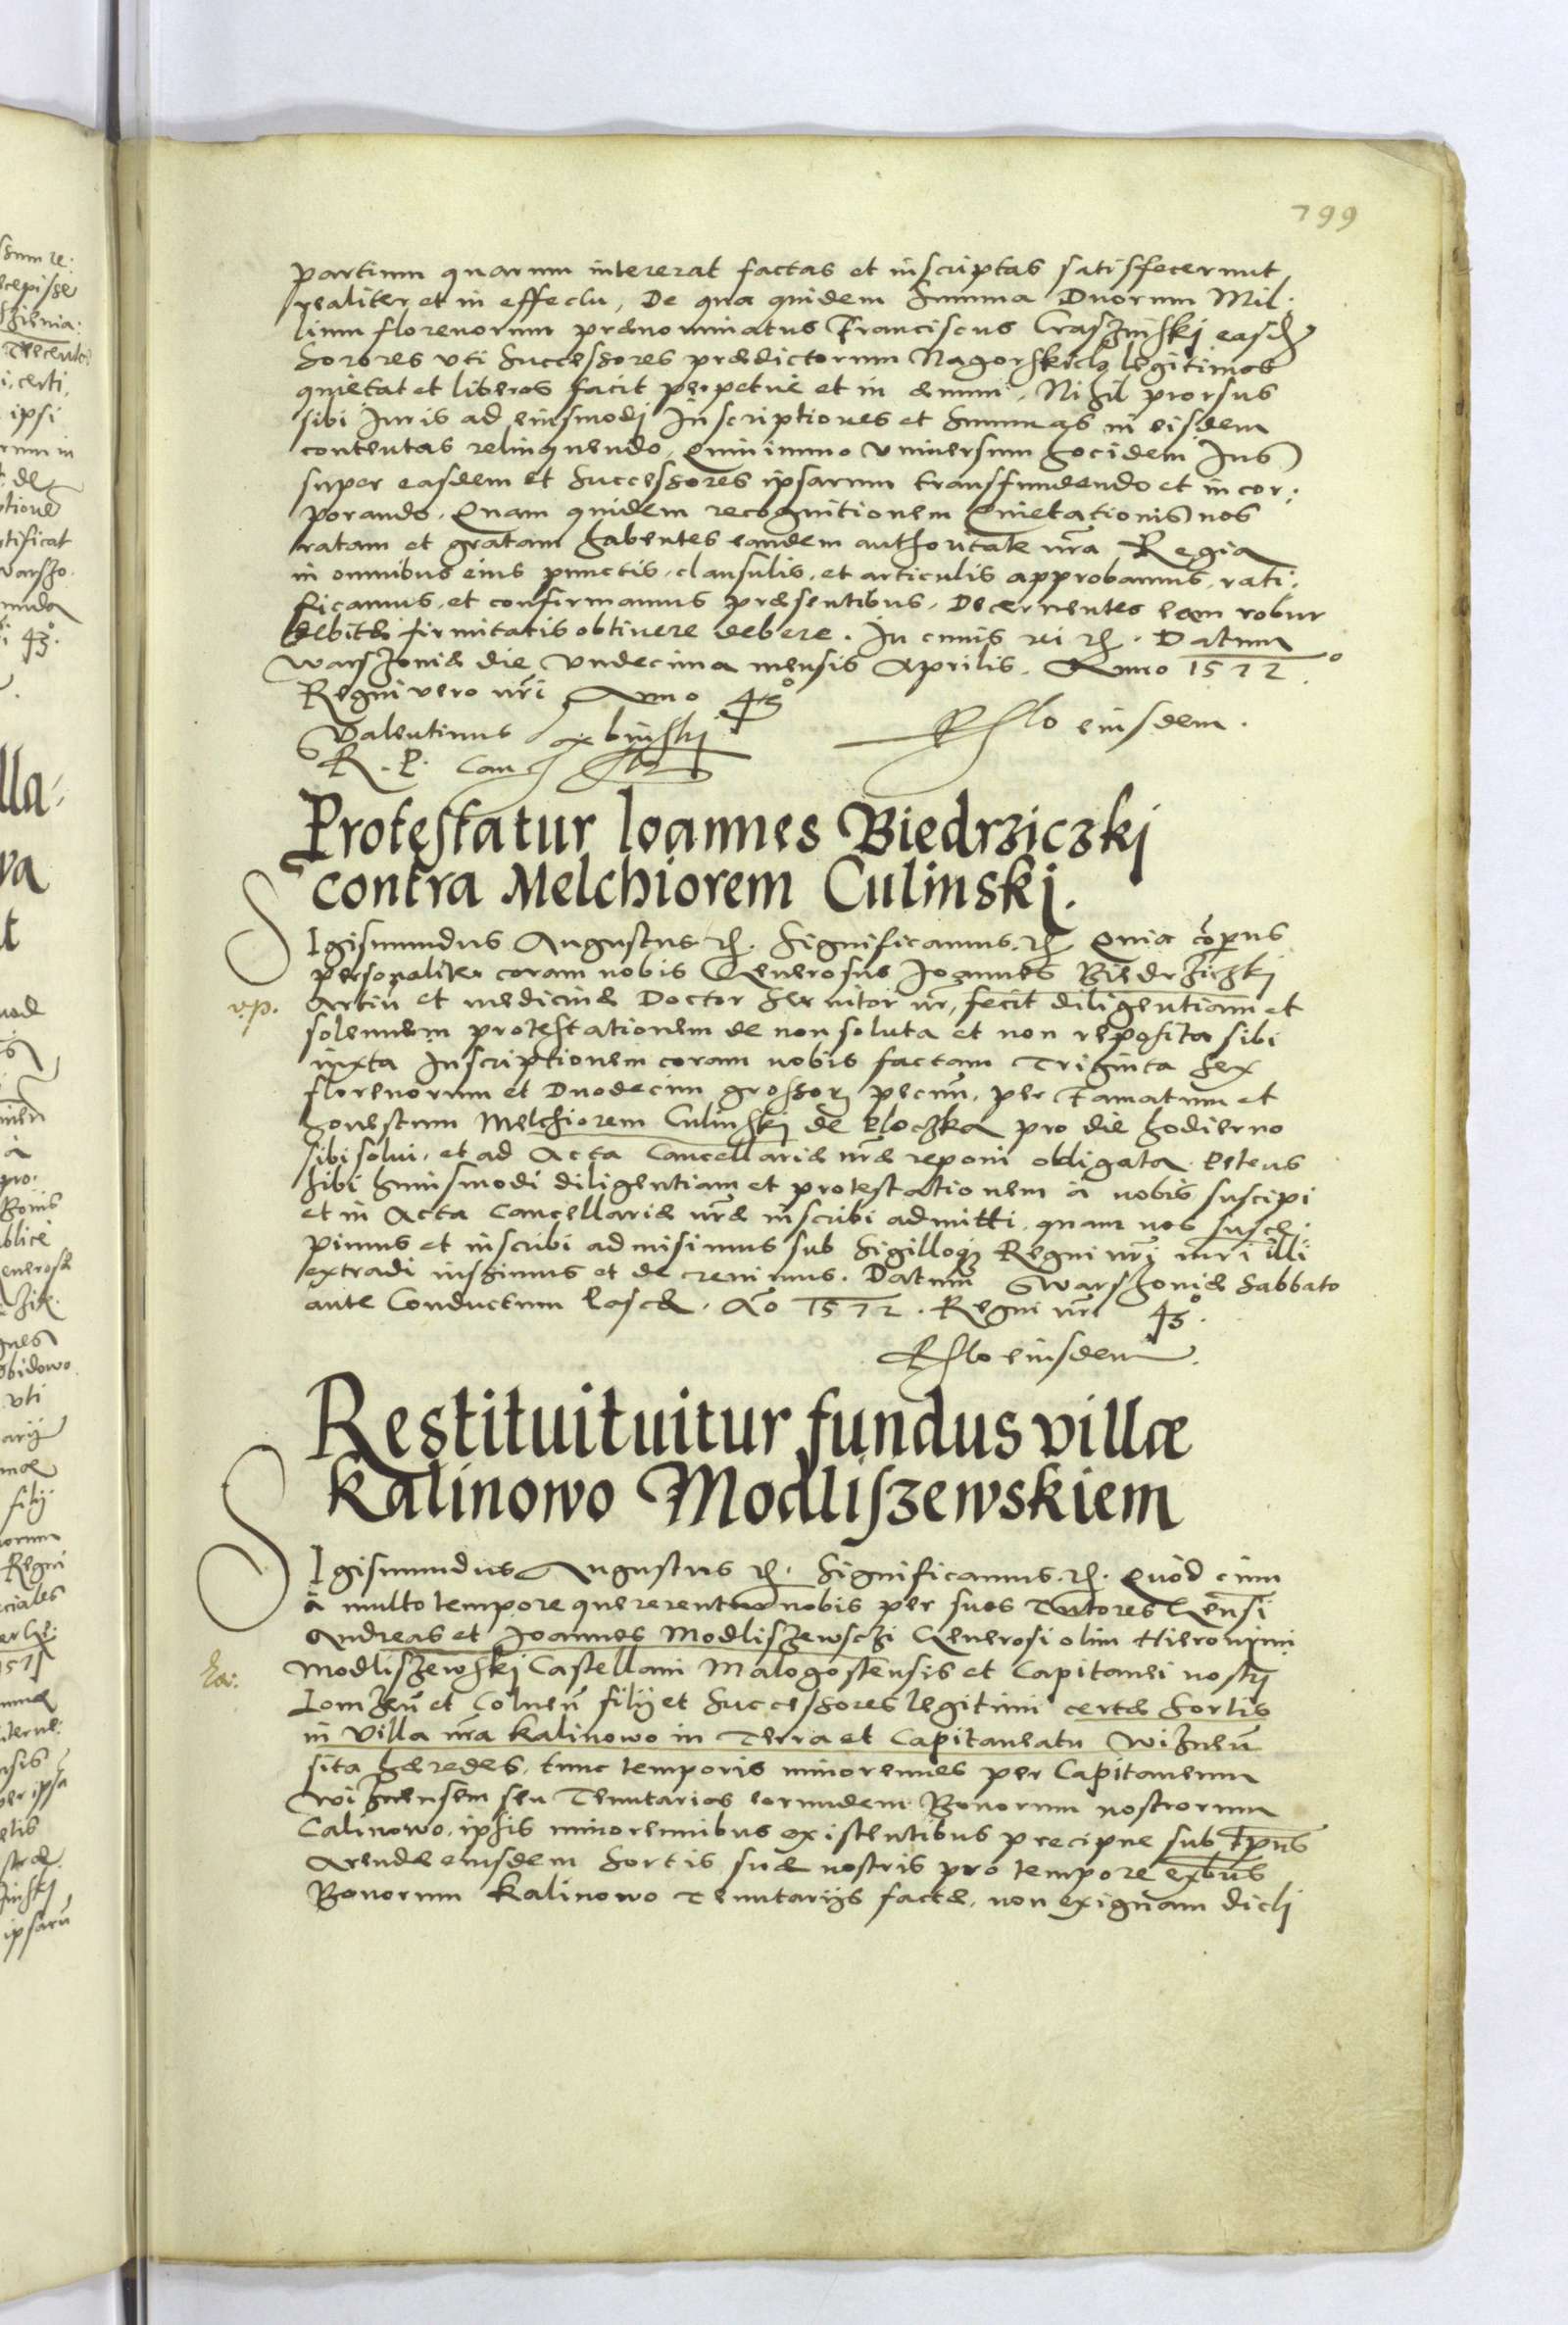 799
partium quarum intererat factas et inscriptas satisfecerunt
realiter et in effectu, De qua quidem Summa Duorum Mil:
lium florenorum prænominatus Franciscus Craszinskj easd
Sorores vti Successores prædictorum Nagorskich legitimos
quietat et liberos facit perpetue et in æuum. Nihil prorsus
sibi Iuris ad eiusmodj Inscriptiones et Summas in eisdem
contentas relinquendo, Quinimmo Vniuersum hocidem Ius
super easdem et Successores ipsarum transfundendo et incor:
porando. Quam quidem recognitionem Quietationis nos
ratam et gratam habentes eandem authoritate nra Regia
in omnibus eius punctis, clausulis, et articulis approbamus, rati:
ficamus, et confirmamus præsentibus, Decernentes eam robur
debitæ firmitatis obtinere debere. In cuius rei etc. Datum
Warszouiæ die Vndecima mensis Aprilis. Anno 1572.º
Regni vero nri Anno 43º
Valentinus Dębinskj
R. P. Canc
Rlo eiusdem.
Protestatur Ioannes Biedrziczkj
contra Melchiorem Culinskj.
SIgismundus Augustus etc. Significamus. etc. Quia comparens
personaliter coram nobis Generosus Joannes Biedrziczkj
v.p. Artiu et medicinæ Doctor Seruitor nr, fecit diligentiam et
solennem protestationem de non soluta et non reposita sibi
iuxta Inscriptionem coram nobis factam Triginta Sex
florenorum et Duodecim grossor pecun, per Famatum et
honestum Melchiorem Culinskj de Ploczka pro die hodierno
sibi solui, et ad Acta Cancellariæ nræ reponi obligata. Petens
sibi huiusmodi diligentiam et protestationem à nobis suscipi
et in Acta Cancellariæ nræ inscribi admitti, quam nos susce:
pimus et inscribi admisimus sub Sigilloq Regni nri nri illi
extradi iussimus et decreuimus. Datum Warszouiæ Sabbato
ante Conductum Pascæ. Ao 1572. Regni nri 43º.
Rlo eiusdem.
Restituituitur fundus villæ
Kalinowo Modliszewskiem
SIgismundus Augustus etc. Significamus. etc. Quod cum
à multo tempore quererentur nobis per suos Tutores Gensi
Andreas et Joannes Modliszewsczi Generosi olim Hieronimi
Modliszewskj Castellani Malogostensis et Capitanei nostrj
Lomzen et Colnen filij et Successores legitimi certæ Sortis
in Villa nra Kalinowo in Terra et Capitaneatu Wiznen
sita hæredes, tunc temporis minorennes per Capitaneum
Wiznensem seu Tenutarios eorundem Bonorum nostrorum
Calinowo, ipsis minorennibus existentibus precipue sub tpus
Arendæ eiusdem Sortis suæ nostris pro tempore exbus
Bonorum Kalinowo Tenutarijs factæ, non exiguam dicti